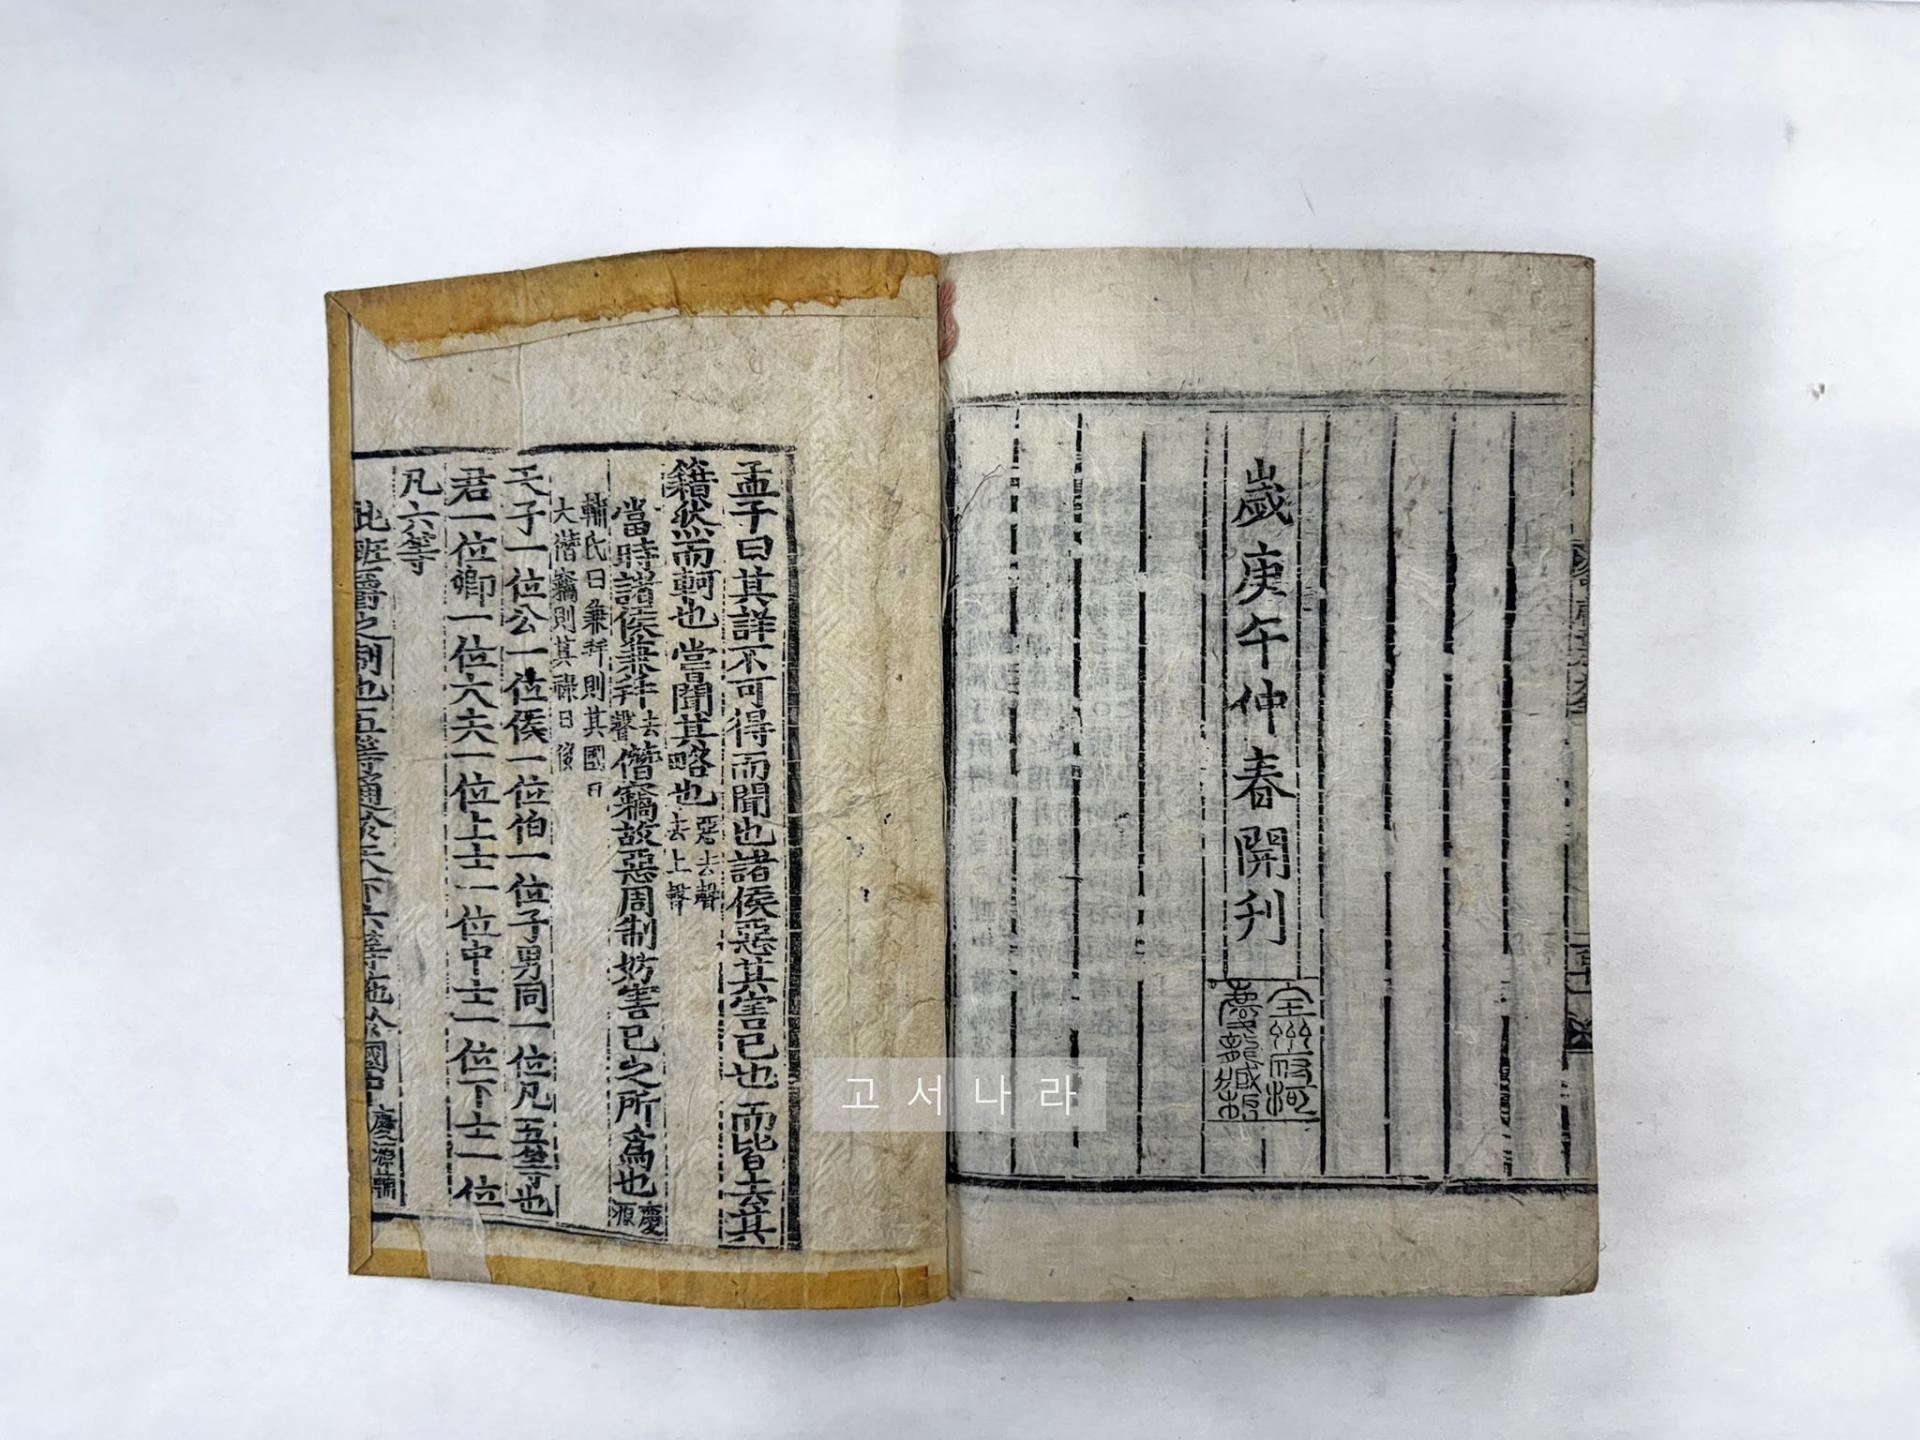 歲庚午仲春開刊
全州府河
慶龍藏板
孟子曰其詳不可得而聞也諸侯惡其害己也而皆去其
籍然而軻也嘗聞其略也惡去聲去上聲
當時諸侯兼幷去聲僭竊故惡周制妨害己之所爲也慶源
輔氏曰兼幷則其國日
大僭竊則其祿日侈
天子一位公一位侯一位伯一位子男同一位凡五等也
君一位卿一位大夫一位上士一位中士一位下士一位
凡六等
此班爵之制也五等通於天下六等施於國中慶源輔
고서나라